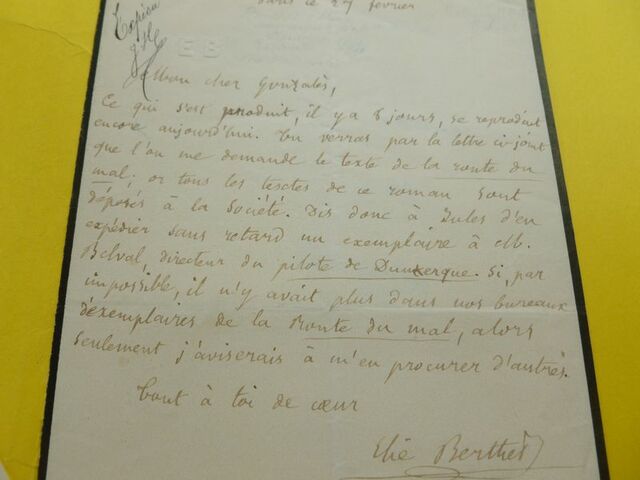 Paris le 27 février
EB
Mon cher Gonzalès,
Ce qui s'est produit, il y a 8 jours, se reproduit
encore aujourd'hui. Tu verras par la lettre ci-joint
que l'on me demande le texte de la route du
mal; or tous les textes de ce roman sont
déposés à la Société. Dis donc à Jules d'en
expédier sans retard un exemplaire à M.
Belval, directeur du pilote de Dunkerque. Si, par
impossible, il n'y avait plus dans nos bureaux
d'exemplaires de la Route du mal, alors
seulement j'aviserais à m'en procurer d'autres.
Tout à toi de cœur
Elie Berthet